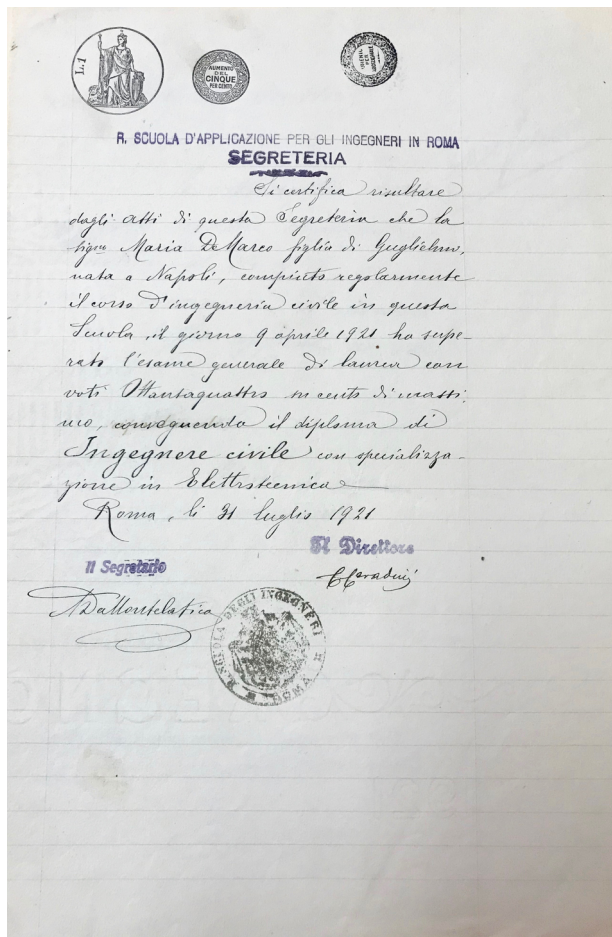 L.1
AUMENTO
DEL
CINQUE
PER CENTO
R. SCUOLA D'APPLICAZIONE PER GLI INGEGNERI IN ROMA
SEGRETERIA
Si certifica risultare
dagli atti di questa Segreteria che la
sigra Maria De Marco figlia di Guglielmo,
nata a Napoli, compiuto regolarmente
il corso d'ingegneria civile in questa
Scuola, il giorno 9 aprile 1921 ha supe-
rato l'esame generale di laurea con
voti Ottantaquattro su cento di massi-
mo, conseguendo il diploma di
Ingegnere civile con specializza-
zione in Elettrotecnica
Roma, li 31 luglio 1921
Il Direttore
Il Segretario
R. SCUOLA DEGLI INGEGNERI
ROMA